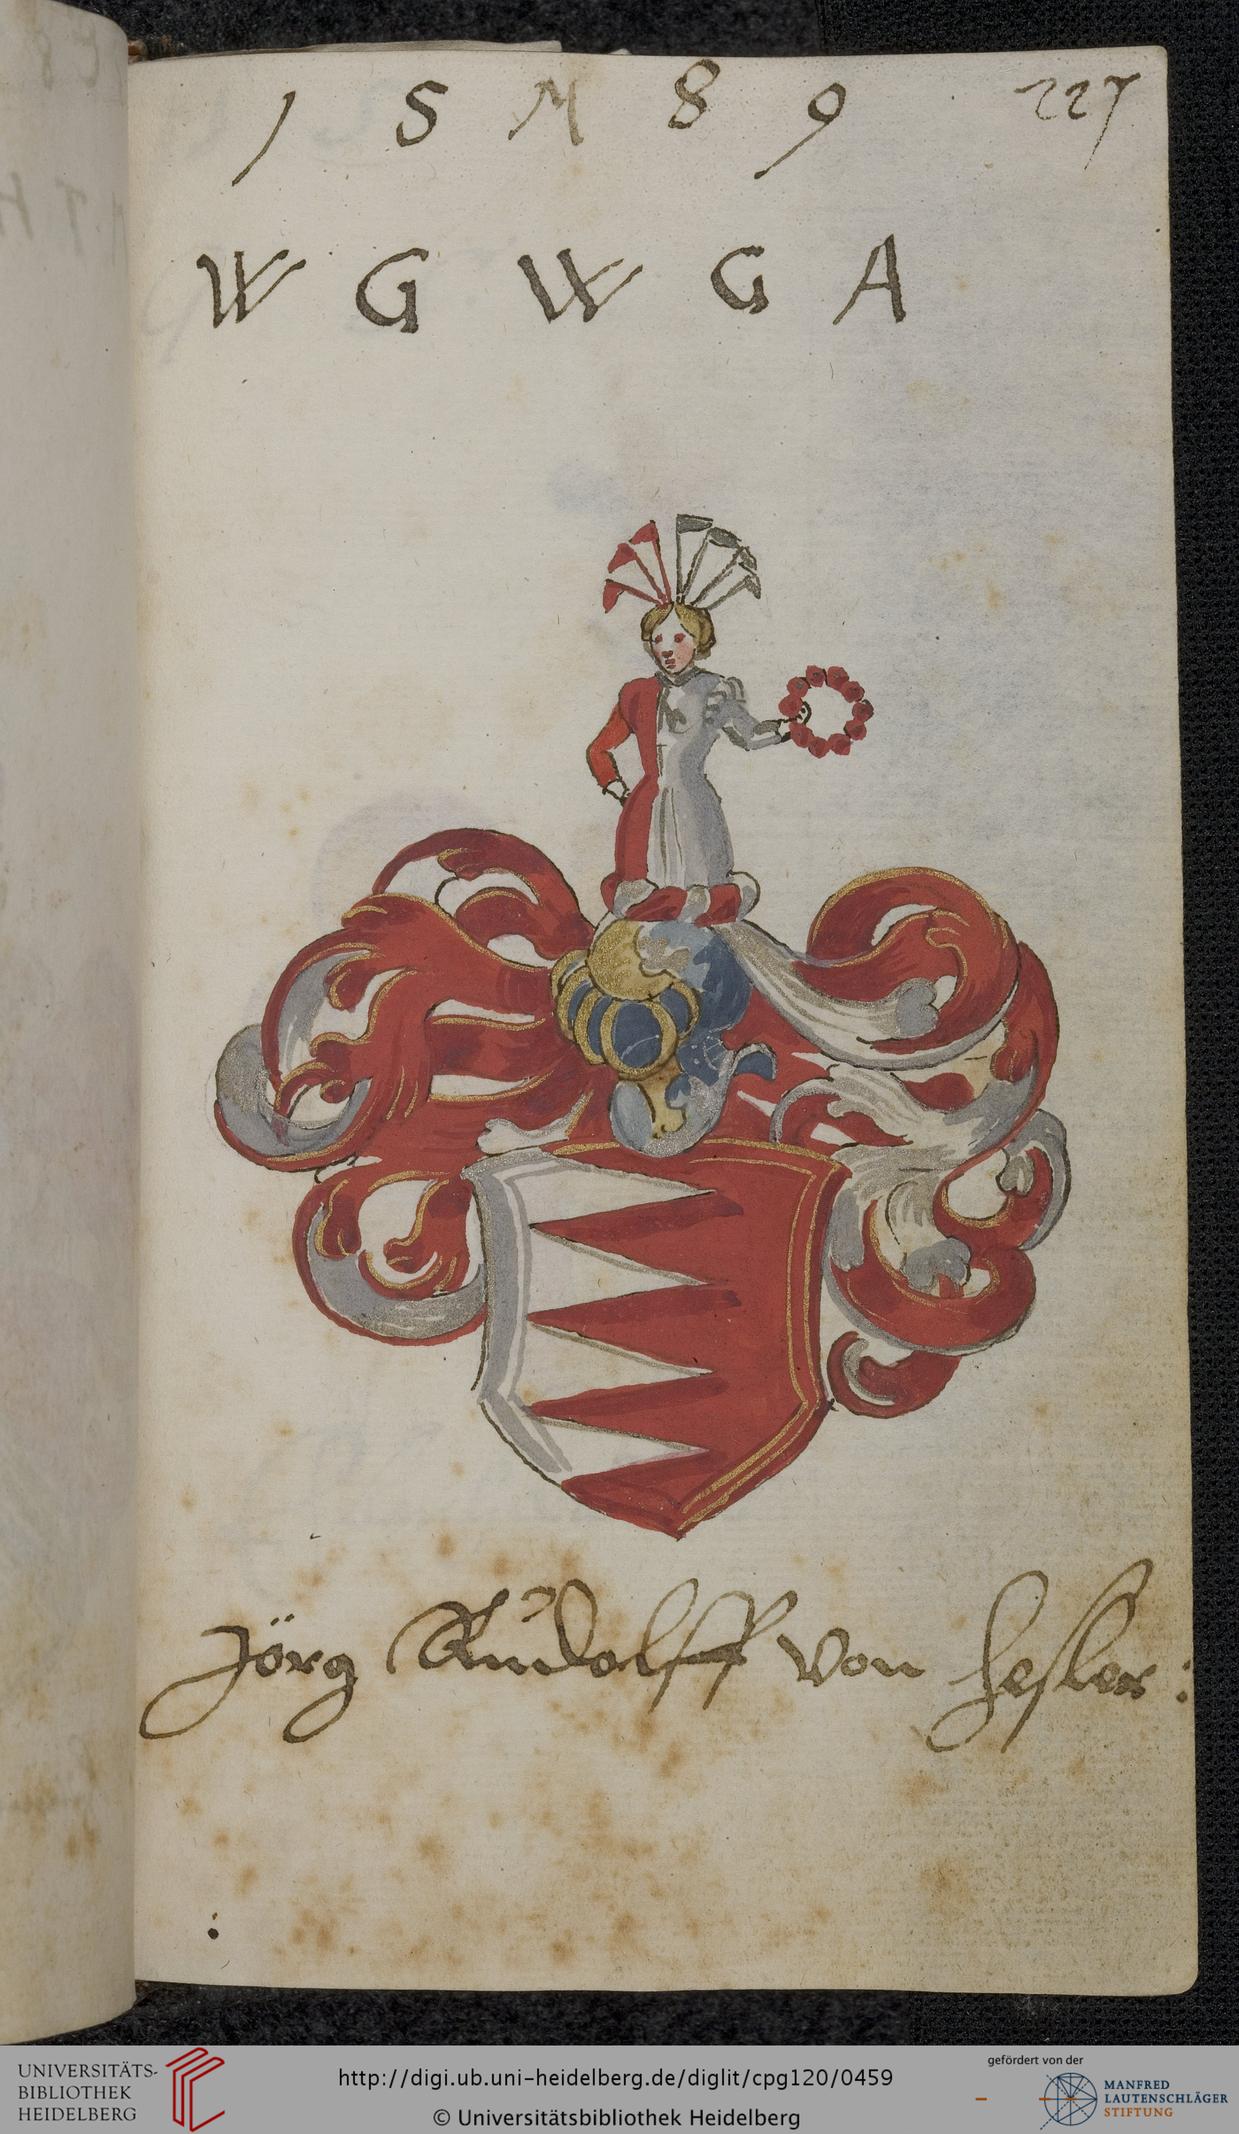 1 5 M 8 9
227
W G W G A
Jörg Rudolff von Hesler:
UNIVERSITÄTS-
BIBLIOTHEK
HEIDELBERG
http://digi.ub.uni-heidelberg.de/diglit/cpg120/0459
© Universitätsbibliothek Heidelberg
gefördert von der
MANFRED
LAUTENSCHLÄGER
STIFTUNG